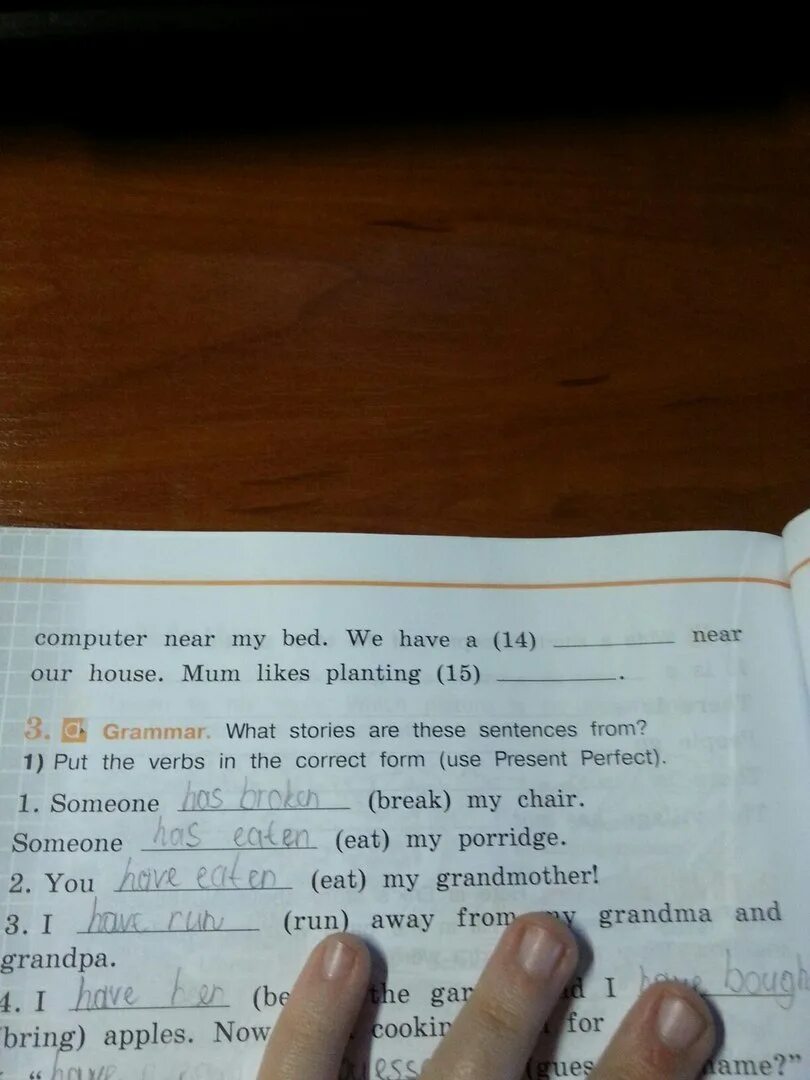 computer near my bed. We have a (14) ________ near
our house. Mum likes planting (15) ________.
3. Grammar. What stories are these sentences from?
1) Put the verbs in the correct form (use Present Perfect).
1. Someone has broken (break) my chair.
Someone has eaten (eat) my porridge.
2. You have eaten (eat) my grandmother!
3. I have run (run) away from my grandma and
grandpa.
4. I have (be the gar I have bough
(bring) apples. Now cookin for
" have guess (gues name?"